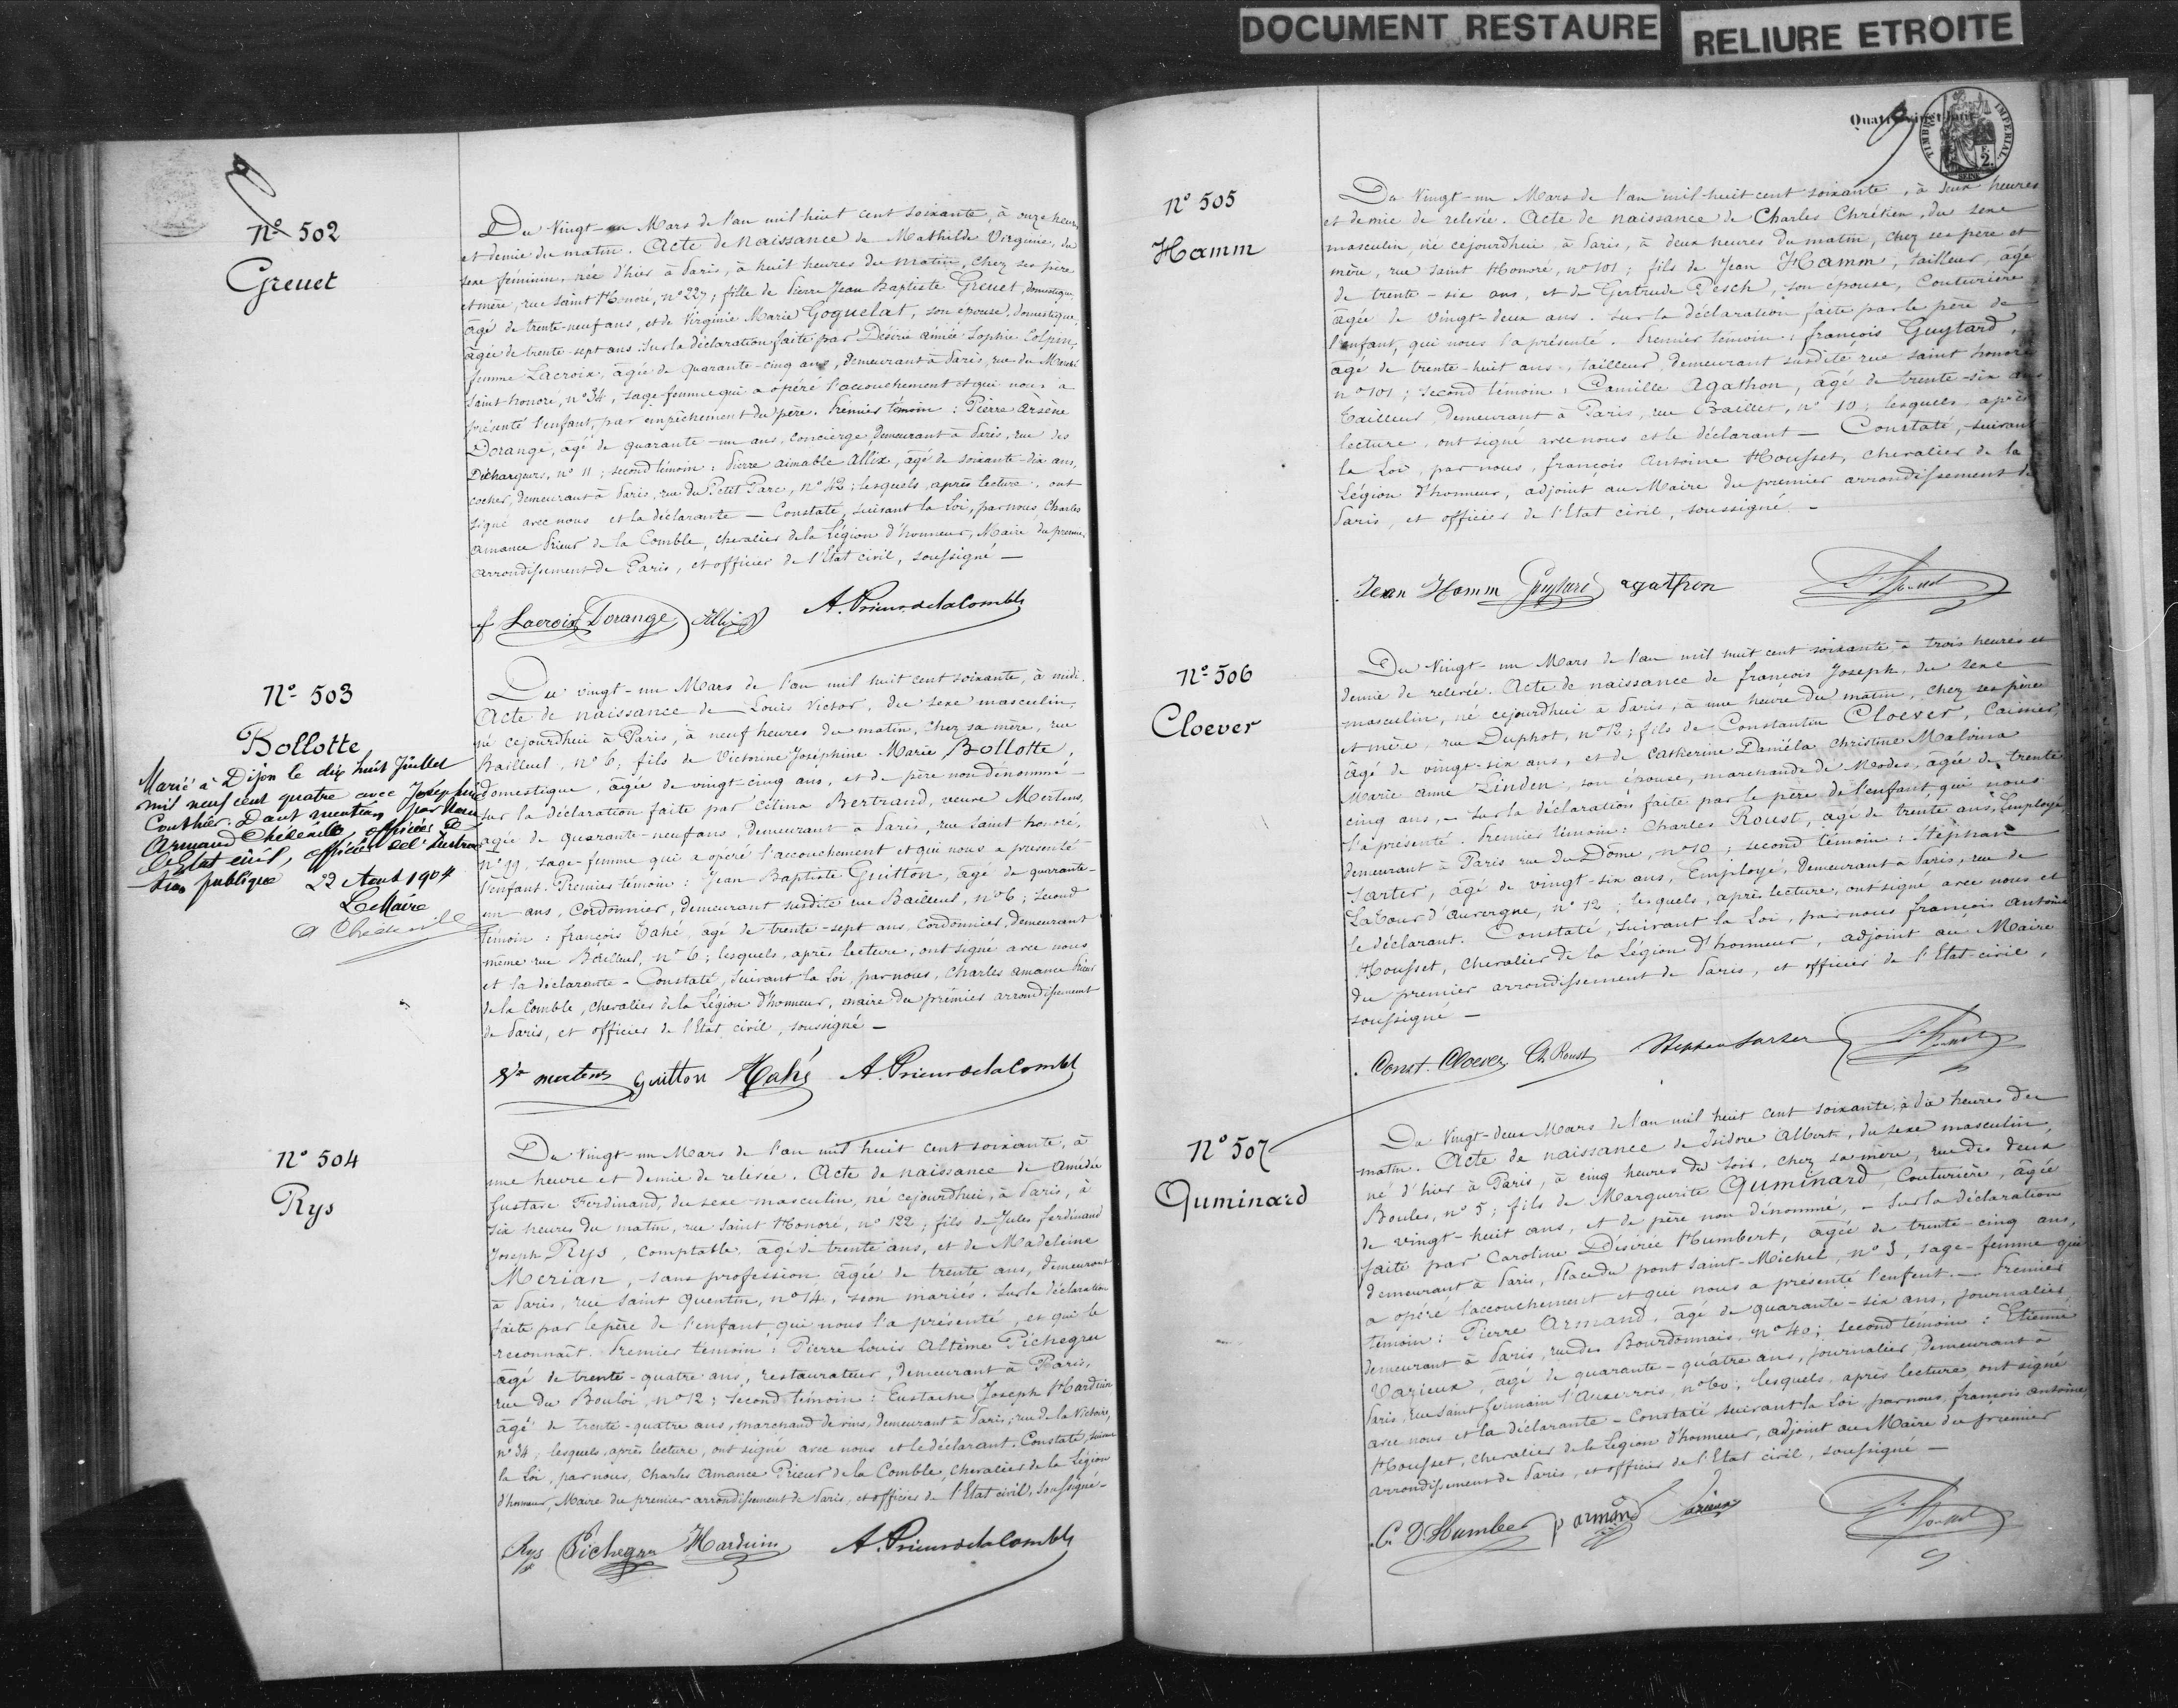 DOCUMENT RESTAURE
RELIURE ETROITE
Nº 502
Greuet
Du Vingt-un Mars de l'an mil huit cent soixante, à onze heures
et demie du matin. Acte de Naissance de Mathilde Virginie, du
sexe féminin, née d'hier à Paris, à huit heures du matin, chez ses père
et mère, rue Saint Honoré, nº 227; fille de Pierre Jean Baptiste Greuet, domestique,
âgé de trente-neuf ans, et de Virginie Marie Goguelat, son épouse, domestique,
âgée de trente-sept ans. Sur la déclaration faite par Désirée aimée Sophie
femme Lacroix, âgée de quarante-cinq ans, demeurant à Paris, rue du Marché
Saint-honoré, nº 34, sage-femme qui a opéré l'accouchement et qui nous a
présenté l'enfant, par empêchement du père. Premier témoin : Pierre Arsène
Dorange, âgé de quarante-un ans, concierge, demeurant à Paris, rue des
Déchargeurs, nº 11; second témoin : Pierre aimable Allix, âgé de soixante-dix ans,
cocher, demeurant à Paris, rue du Petit Parc, nº 42; lesquels, après lecture, ont
signé avec nous et la déclarante — Constaté, suivant la Loi, par nous, Charles
amance Prieur de la Comble, chevalier de la Légion d'honneur, Maire du premier
arrondissement de Paris, et officier de l'Etat civil, soussigné —
f Lacroix Dorange Allix A. Prieur de la Comble
Nº 503
Bollotte
Marié à Dijon le dix huit Juillet
mil neuf cent quatre avec Joséphine
Couthier. Dont mention par Nous
Armand officier de
l'Etat civil, officier de l'Instruc
tion publique 22 Aout 1904
Le Maire
Du vingt-un Mars de l'an mil huit cent soixante, à midi.
Acte de naissance de Louis Victor, du sexe masculin,
né cejourdhui à Paris, à neuf heures du matin, chez sa mère, rue
Bailleul, nº 6; fils de Victorine Joséphine Marie Bollotte,
domestique, âgée de vingt-cinq ans, et de père non dénommé —
Sur la déclaration faite par Célina Bertrand, veuve Mertens,
agée de quarante-neuf ans, demeurant à Paris, rue Saint honoré,
nº 99, sage-femme qui a opéré l'accouchement et qui nous a présenté
l'enfant. Premier témoin : Jean Baptiste Guitton, âgé de quarante-
un ans, Cordonnier, demeurant susdite rue Bailleul, nº 6; second
témoin : françois Mahé, agé de trente-sept ans, Cordonnier, demeurant
même rue Bailleul, nº 6; lesquels, après lecture, ont signé avec nous
et la déclarante — Constaté, suivant la Loi, par nous, Charles amance Prieur
de la Comble, chevalier de la Légion d'honneur, maire du premier arrondissement
de Paris, et officier de l'Etat civil, soussigné —
Vve mertens Guitton Mahé A. Prieur de la Comble
Nº 504
Rys
Du Vingt-un Mars de l'an mil huit cent soixante, à
une heure et demie de relevée. Acte de naissance de Amédée
Gustave Ferdinand, du sexe masculin, né cejourdhui, à Paris, à
six heures du matin, rue Saint Honoré, nº 122; fils de Jules ferdinand
Joseph Rys, Comptable, âgé de trente ans, et de Madeleine
Merian, sans profession, âgée de trente ans, demeurant
à Paris, rue Saint Quentin, nº 14, non mariés. Sur la déclaration
faite par le père de l'enfant qui nous l'a présenté, et qui le
reconnaît. Premier témoin : Pierre Louis Altème Pichegru
âgé de trente-quatre ans, restaurateur, demeurant à Paris,
rue du Bouloi, nº 12; second témoin : Eustache Joseph Harduin
âgé de trente-quatre ans, marchand de vins, demeurant à Paris, rue de la Victoire,
nº 34, lesquels, après lecture, ont signé avec nous et le déclarant. Constaté, suivant
la Loi, par nous, Charles Amance Prieur de la Comble, Chevalier de la Légion
d'honneur, Maire du premier arrondissement de Paris, et officier de l'Etat civil, soussigné —
Rys Pichegru Harduin A. Prieur de la Comble
TIMBRE IMPERIAL
2.
SEINE
Nº 505
Hamm
Du Vingt-un Mars de l'an mil-huit cent soixante, à deux heures
et demie de relevée. Acte de naissance de Charles Chrétien, du sexe
masculin, né cejourdhui, à Paris, à deux heures du matin, chez ses père et
mère, rue Saint Honoré, nº 101; fils de Jean Hamm, tailleur, âgé
de trente-six ans, et de Gertrude Desch, son épouse, Couturière
âgée de vingt-deux ans. Sur la déclaration faite par le père de
l'enfant, qui nous l'a présenté. Premier témoin : françois Guytard,
âgé de trente-huit ans, tailleur, demeurant susdite rue Saint honoré
nº 101; second témoin : Camille Agathon, âgé de trente-six ans
tailleur, demeurant à Paris, rue Baillet, nº 10; lesquels, après
lecture, ont signé avec nous et le déclarant — Constaté, suivant
la Loi, par nous, françois Antoine Housset, chevalier de la
Légion d'honneur, adjoint au Maire du premier arrondissement de
Paris, et officier de l'Etat civil, soussigné. —
Jean Hamm Guytard agathon
Nº 506
Cloever
Du Vingt-un Mars de l'an mil huit cent soixante, à trois heures et
demie de relevée. Acte de naissance de françois Joseph, du sexe
masculin, né cejourdhui à Paris, à une heure du matin, chez ses père
et mère, rue Duphot, nº 12; fils de Constantin Cloever, Caissier,
âgé de vingt-six ans, et de Catherine Daniéla Christine Malvina
Marie Anne Linden, son épouse, marchande de Modes, âgée de trente
cinq ans, — Sur la déclaration faite par le père de l'enfant, qui nous
l'a présenté. Premier témoin : Charles Roust, âgé de trente ans, Employé
demeurant à Paris rue du Dôme, nº 10; second témoin : Stéphan
Sarter, âgé de vingt-six ans, Employé, demeurant à Paris, rue de
Latour d'auvergne, nº 12; lesquels, après lecture, ont signé avec nous et
le déclarant. Constaté, suivant la Loi, par nous françois Antoine
Housset, chevalier de la Légion d'honneur, adjoint au Maire
du premier arrondissement de Paris, et officier de l'Etat-civil,
soussigné —
Const. Cloever Ch Roust Stephan Sarter
Nº 507
Quminard
Du Vingt-deux Mars de l'an mil huit cent soixante, à dix heures du
matin. Acte de naissance de Isidore Albert, du sexe masculin,
né d'hier à Paris, à cinq heures du soir, chez sa mère, rue des deux
Boules, nº 5; fils de Marguerite Quminard, Couturière, âgée
de vingt-huit ans, et de père non dénommé, — Sur la déclaration
faite par Caroline Désirée Humbert, âgée de trente-cinq ans,
demeurant à Paris, Place du pont Saint-Michel, nº 3, sage-femme qui
a opéré l'accouchement et qui nous a présenté l'enfant. — Premier
témoin : Pierre Armand, âgé de quarante-six ans, journalier
demeurant à Paris, rue des Bourdonnais, nº 40; second témoin : Etienne
Varieux, agé de quarante-quatre ans, journalier, demeurant à
Paris, rue Saint Germain l'Auxerrois, nº 60; lesquels, après lecture, ont signé
avec nous et la déclarante — Constaté suivant la Loi, par nous, françois Antoine
Housset, chevalier de la Légion d'honneur, adjoint au Maire du premier
arrondissement de Paris, et officier de l'Etat civil, soussigné —
C. D. Humbert p armand